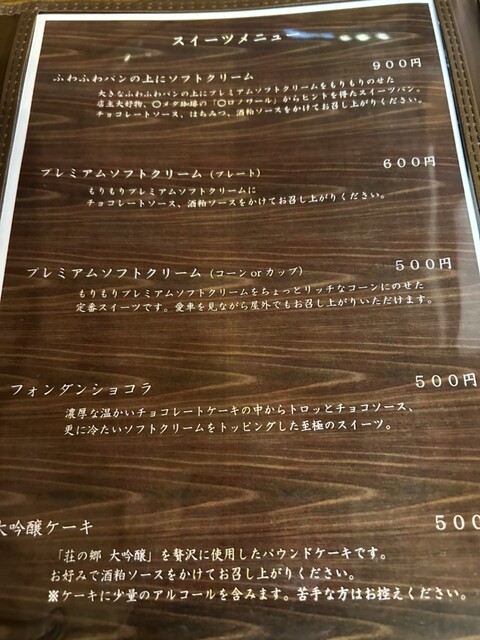 スイーツメニュー
900円
ふわふわパンの上にソフトクリーム
大きなふわふわパンの上にプレミアムソフトクリームをもりもりのせた
店主大好物、〇メダ珈琲の「〇ロノワール」からヒントを得たスイーツパン。
チョコレートソース、はちみつ、酒粕ソースをかけてお召し上がりください。
600円
プレミアムソフトクリーム（プレート）
もりもりプレミアムソフトクリームに
チョコレートソース、酒粕ソースをかけてお召し上がりください。
500円
プレミアムソフトクリーム（コーン or カップ）
もりもりプレミアムソフトクリームをちょっとリッチなコーンにのせた
定番スイーツです。愛車を見ながら屋外でもお召し上がりいただけます。
500円
フォンダンショコラ
濃厚な温かいチョコレートケーキの中からトロッとチョコソース、
更に冷たいソフトクリームをトッピングした至極のスイーツ。
500
大吟醸ケーキ
「荘の郷 大吟醸」を贅沢に使用したパウンドケーキです。
お好みで酒粕ソースをかけてお召し上がりください。
※ケーキに少量のアルコールを含みます。苦手な方はお控えください。